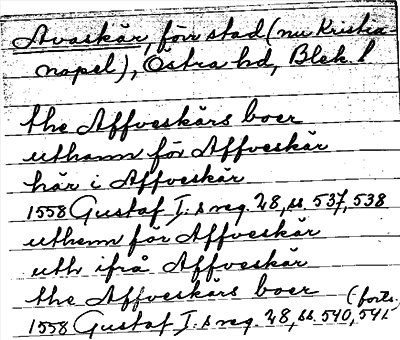 Avaskär, förr stad (nu Kristia-
nopel), Östra hd, Blek. l
the Affveskärs boer
uthann för Affveskär
här i Affveskär
1558 Gustaf I:s reg. 28, ss. 537, 538
uthenn för Affveskär
uth ifrå Affveskär
the Affveskärs boer (forts.
1558 Gustaf I:s reg. 28, ss. 540, 541